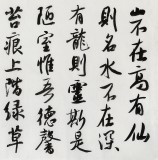 山不在高有仙
則名水不在深
有龍則靈斯是
陋室惟吾德馨
苔痕上階綠草